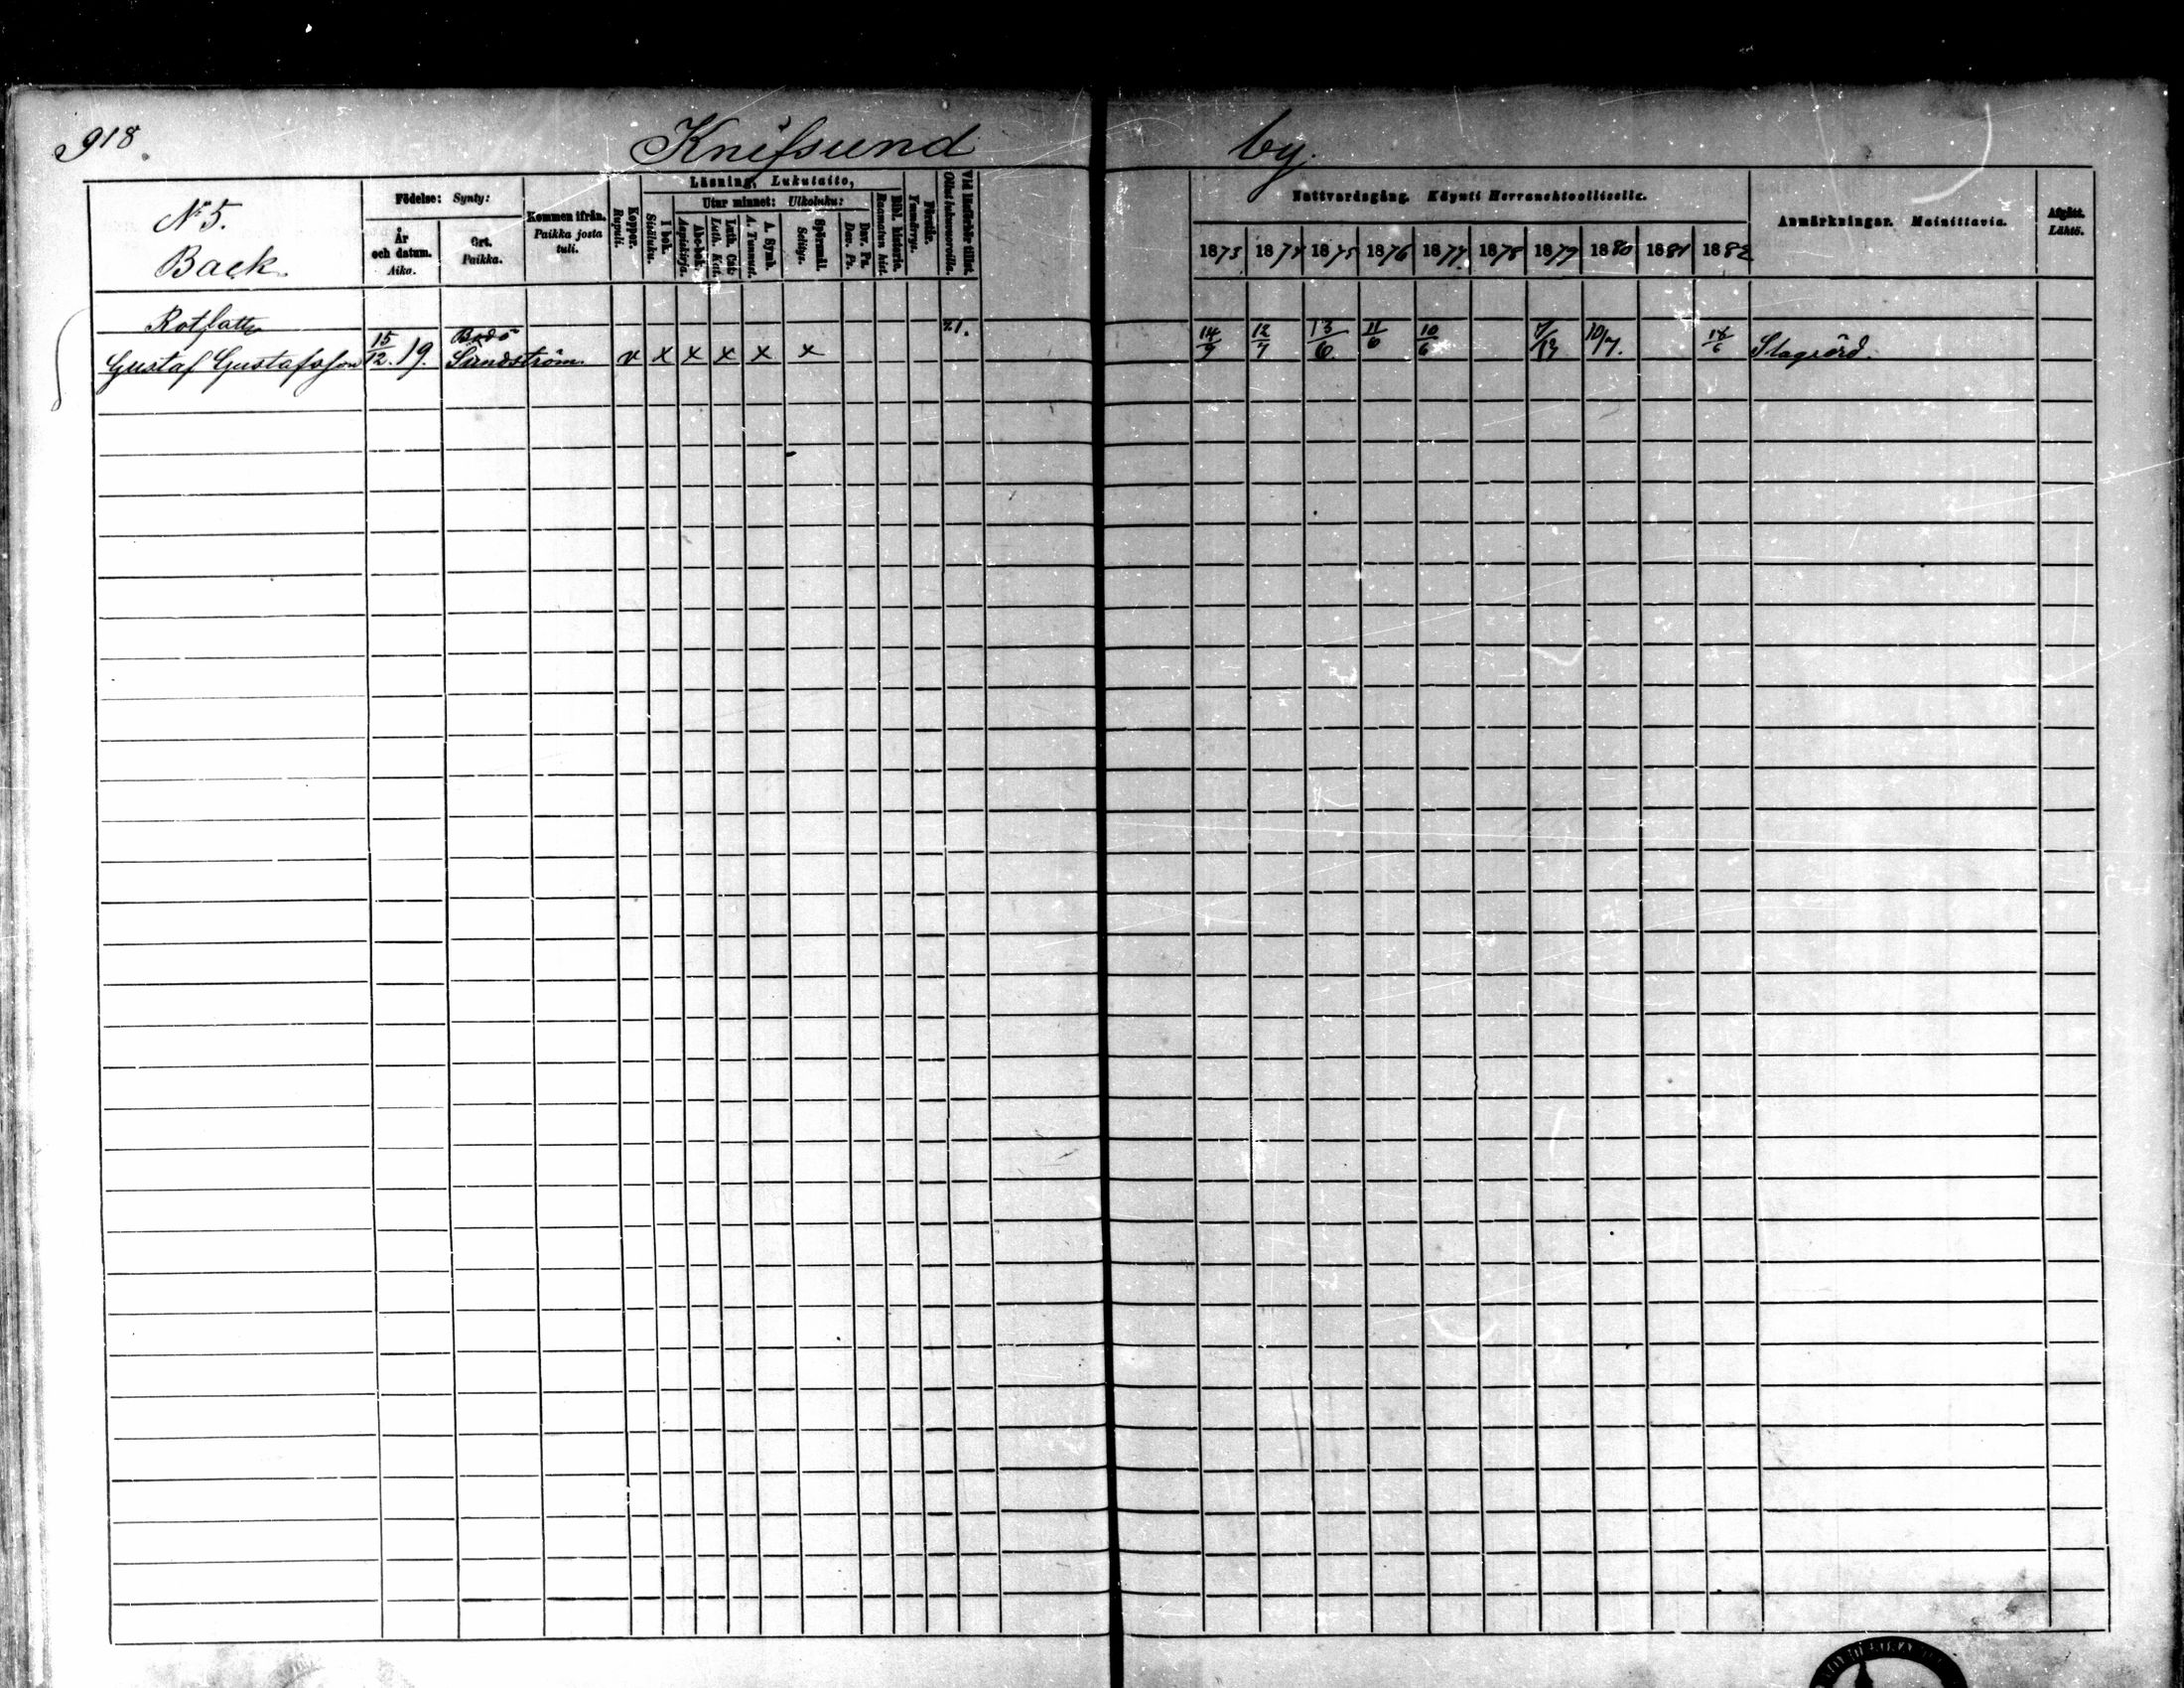 918.
Knifsund by.
N:o 5.
Back.
Födelse: Synty:
År och datum. Aika.
Ort. Paikka.
Kommen ifrån. Paikka josta tuli.
Koppor. Rupuli.
Läsning, Lukutaito,
I bok. Sisäluku.
Utur minnet: Ulkoluku:
Abc-bok. Aapiskirja.
Luth. Cat. Luth. Kat.
A. Symb. A. Tunnust.
Spörsmål. Selitys.
Dav. Ps. Dav. Ps.
Bibl. historie. Raamatun hist.
Förstår. Ymmärrys.
Vid läseförhör tillst. Ollut lukuvuorolla.
Nattvardsgång. Käynti Herranehtoollisella.
1873 1874 1875 1876 1877 1878 1879 1880 1881 1882
Anmärkningar. Mainittavia.
Afgått. Lähtö.
Rotfattig
Gustaf Gustafsson 15/12. 19. Bodö Sandström v x x x x x 14/9 12/7 13/6 11/6 10/6 10/7. 18/6 Slagrörd.